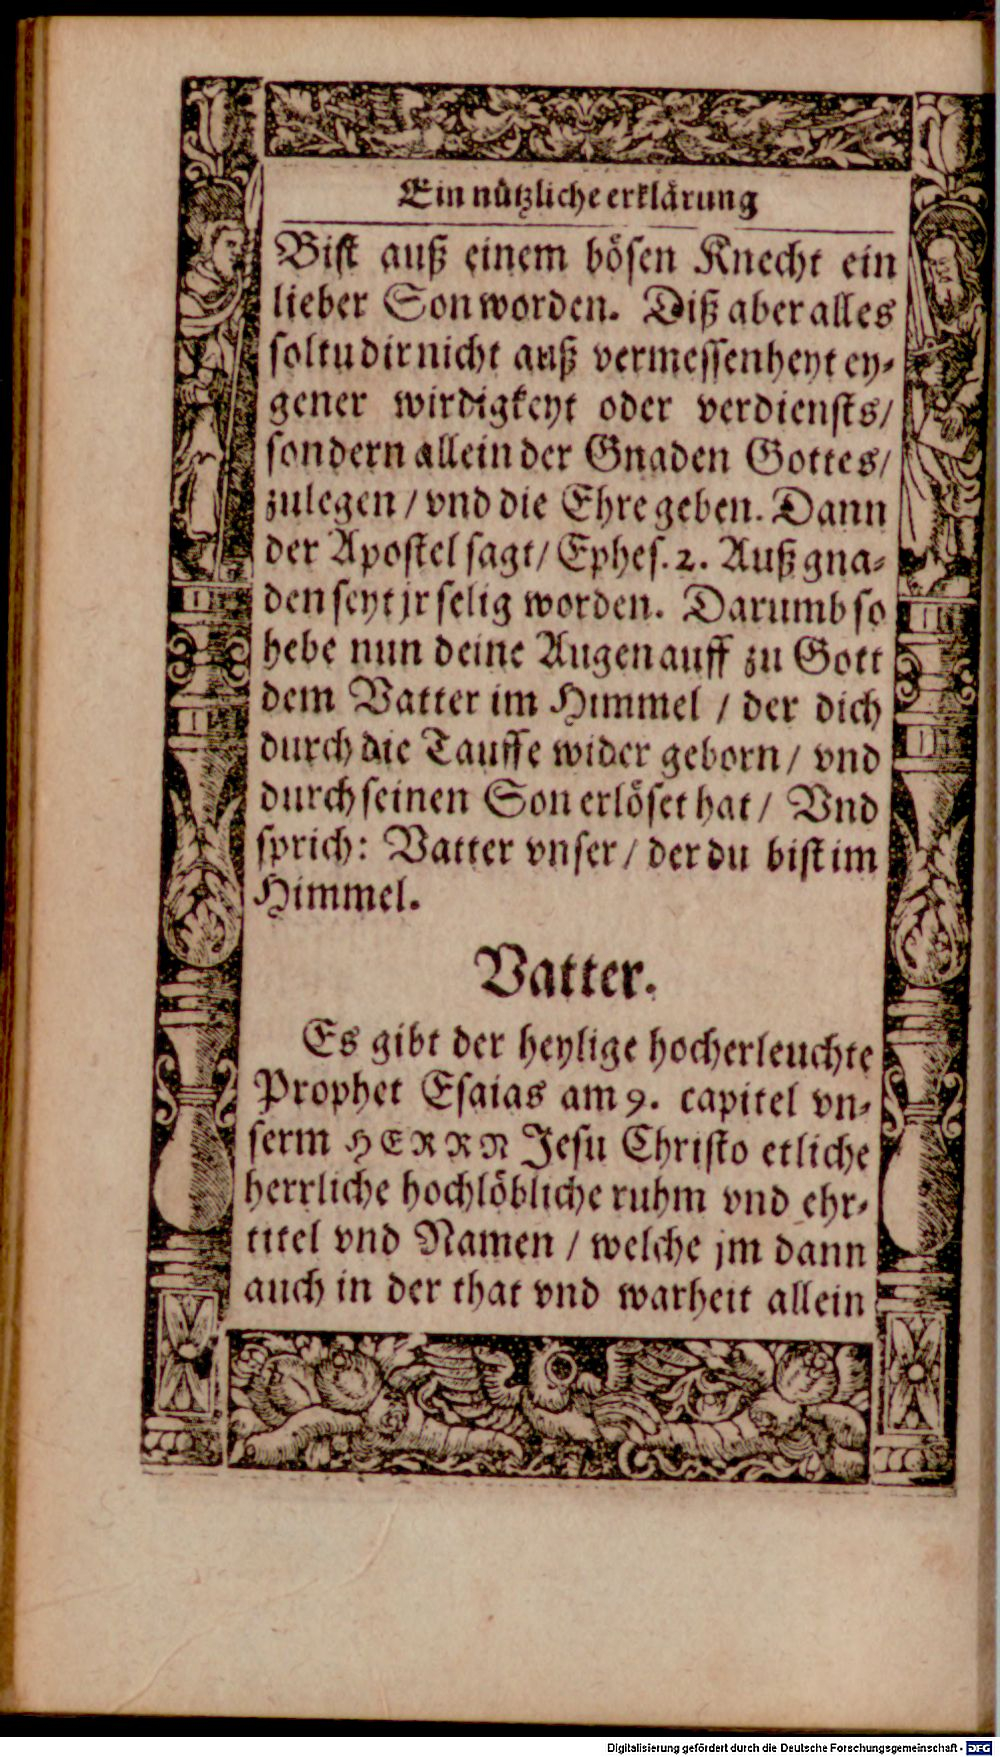 Ein nützliche erklärung
Bist auß einem bösen Knecht ein
lieber Son worden. Diß aber alles
soltu dir nicht auß vermessenheyt ey-
gener wirdigkeyt oder verdiensts/
sondern allein der Gnaden Gottes/
zulegen / vnd die Ehre geben. Dann
der Apostel sagt/ Ephes. 2. Auß gna-
den seyt jr selig worden. Darumb so
hebe nun deine Augen auff zu Gott
dem Vatter im Himmel / der dich
durch die Tauffe wider geborn / vnd
durch seinen Son erlöset hat / Vnd
sprich: Vatter vnser / der du bist im
Himmel.
Vatter.
Es gibt der heylige hocherleuchte
Prophet Esaias am 9. capitel vn-
serm HERRN Jesu Christo etliche
herrliche hochlöbliche ruhm vnd ehr-
titel vnd Namen / welche jm dann
auch in der that vnd warheit allein
Digitalisierung gefördert durch die Deutsche Forschungsgemeinschaft - DFG